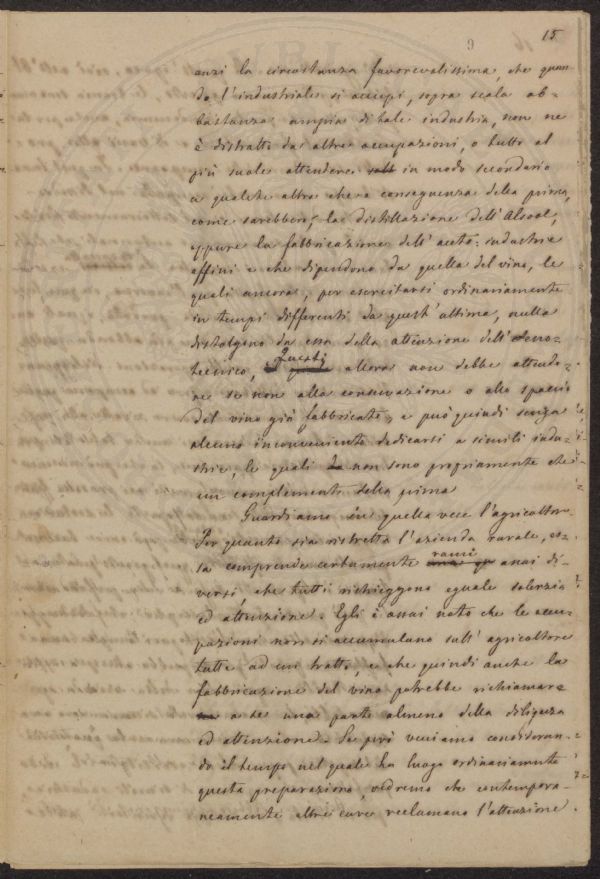 15
9
anzi la circostanza favorevolissima, che quan-
do l'industriale si occupi, sopra scala ab-
bastanza ampia di tale industria, non ne
è distratto da altre occupazioni, o tutto al
più suole attendere in modo secondario
a qualche altra che è conseguenza della prima,
come sarebbero, la distillazione dell'Alcool,
oppure la fabbricazione dell'aceto: industrie
affini e che dipendono da quella del vino, le
quali ancora, per esercitarsi ordinariamente
in tempi differenti da quest'ultima, nulla
distolgono da essa della attenzione dell'Oeno-
tecnico, Questi allora non debbe attende-
re se non alla conservazione o allo spaccio
del vino già fabbricato, e può quindi senza
alcuno inconveniente dedicarsi a simili indu-
strie, le quali non sono propriamente che
un complemento della prima
Guardiamo in quella vece l'agricoltore.
Per quanto sia ristretta l'azienda rurale, es-
sa comprende certamente rami assai di-
versi, che tutti richieggono eguale solerzia
ed attenzione. Egli è assai noto che le occu-
pazioni non si accumulano sull'agricoltore
tutte ad un tratto, e che quindi anche la
fabbricazione del vino potrebbe richiamar-
a se una parte almeno della diligenza
ed attenzione. Se però veniamo consideran-
do il tempo nel quale ha luogo ordinariamente
questa preparazione, vedremo che contempora-
neamente altre cure reclamano l'attenzione